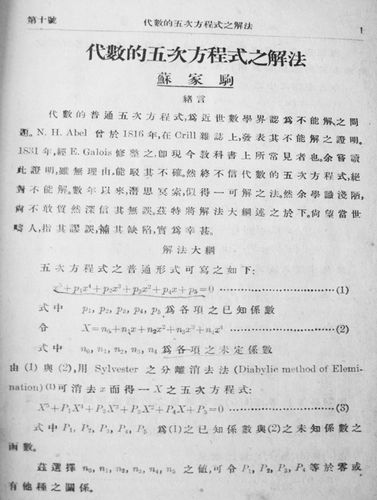 第十號 代數的五次方程式之解法 1
代數的五次方程式之解法
蘇家駒
緒言
代數的普通五次方程式,爲近世數學界認爲不能解之問
題。N. H. Abel 曾於1816年,在Crill雜誌上,發表其不能解之證明。
1831年,經E. Galois修整之,即現今教科書上所常見者也。余嘗讀
此證明,雖無理由,能駁其不確。然終不信代數的五次方程式,絕
對不能解。數年以來,潛思冥索,似得一可解之法。然余學識淺陋,
尙不敢質然深信其無誤。茲特將解法大綱述之於下。尙望當世
疇人,指其謬誤,補其缺陷,實爲幸甚。
解法大綱
五次方程式之普通形式可寫之如下:
x⁵+p₁x⁴+p₂x³+p₃x²+p₄x+p₅=0 ………(1)
式中 p₁, p₂, p₃, p₄, p₅ 爲各項之已知係數
令 X=n₀+n₁x+n₂x²+n₃x³+n₄x⁴ ………(2)
式中 n₀, n₁, n₂, n₃, n₄ 爲各項之未定係數
由(1)與(2),用Sylvester之分離消去法(Diabylic method of Elemi-
nation)⁽¹⁾可消去x而得一X之五次方程式:
X⁵+P₁X⁴+P₂X³+P₃X²+P₄X+P₅=0 ………(3)
式中P₁, P₂, P₃, P₄, P₅ 爲(1)之已知係數與(2)之未知係數之
函數。
茲選擇 n₀, n₁, n₂, n₃, n₄, n₅ 之値,可令P₁, P₂, P₃, P₄等於零或
有他種之關係。